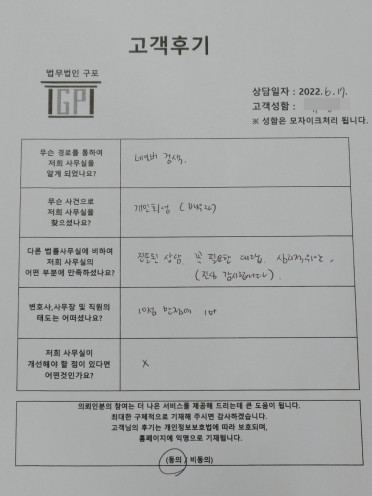 고객후기
법무법인 구포
GP
상담일자 : 2022. 6. 17.
고객성함 :
※ 성함은 모자이크처리 됩니다.
무슨 경로를 통하여
저희 사무실을
알게 되었나요?
네이버 검색.
무슨 사건으로
저희 사무실을
찾으셨나요?
개인회생 (
다른 법률사무실에 비하여
저희 사무실의
어떤 부분에 만족하셨나요?
진솔된 상담 꼭 필요한 대답,
(진심 감사드립니다).
변호사,사무장 및 직원의
태도는 어떠셨나요?
10점 만점에
저희 사무실이
개선해야 할 점이 있다면
어떤것인가요?
X
의뢰인분의 참여는 더 나은 서비스를 제공해 드리는데 큰 도움이 됩니다.
최대한 구체적으로 기재해 주시면 감사하겠습니다.
고객님의 후기는 개인정보보호법에 따라 보호되며,
홈페이지에 익명으로 기재됩니다.
(동의 / 비동의)